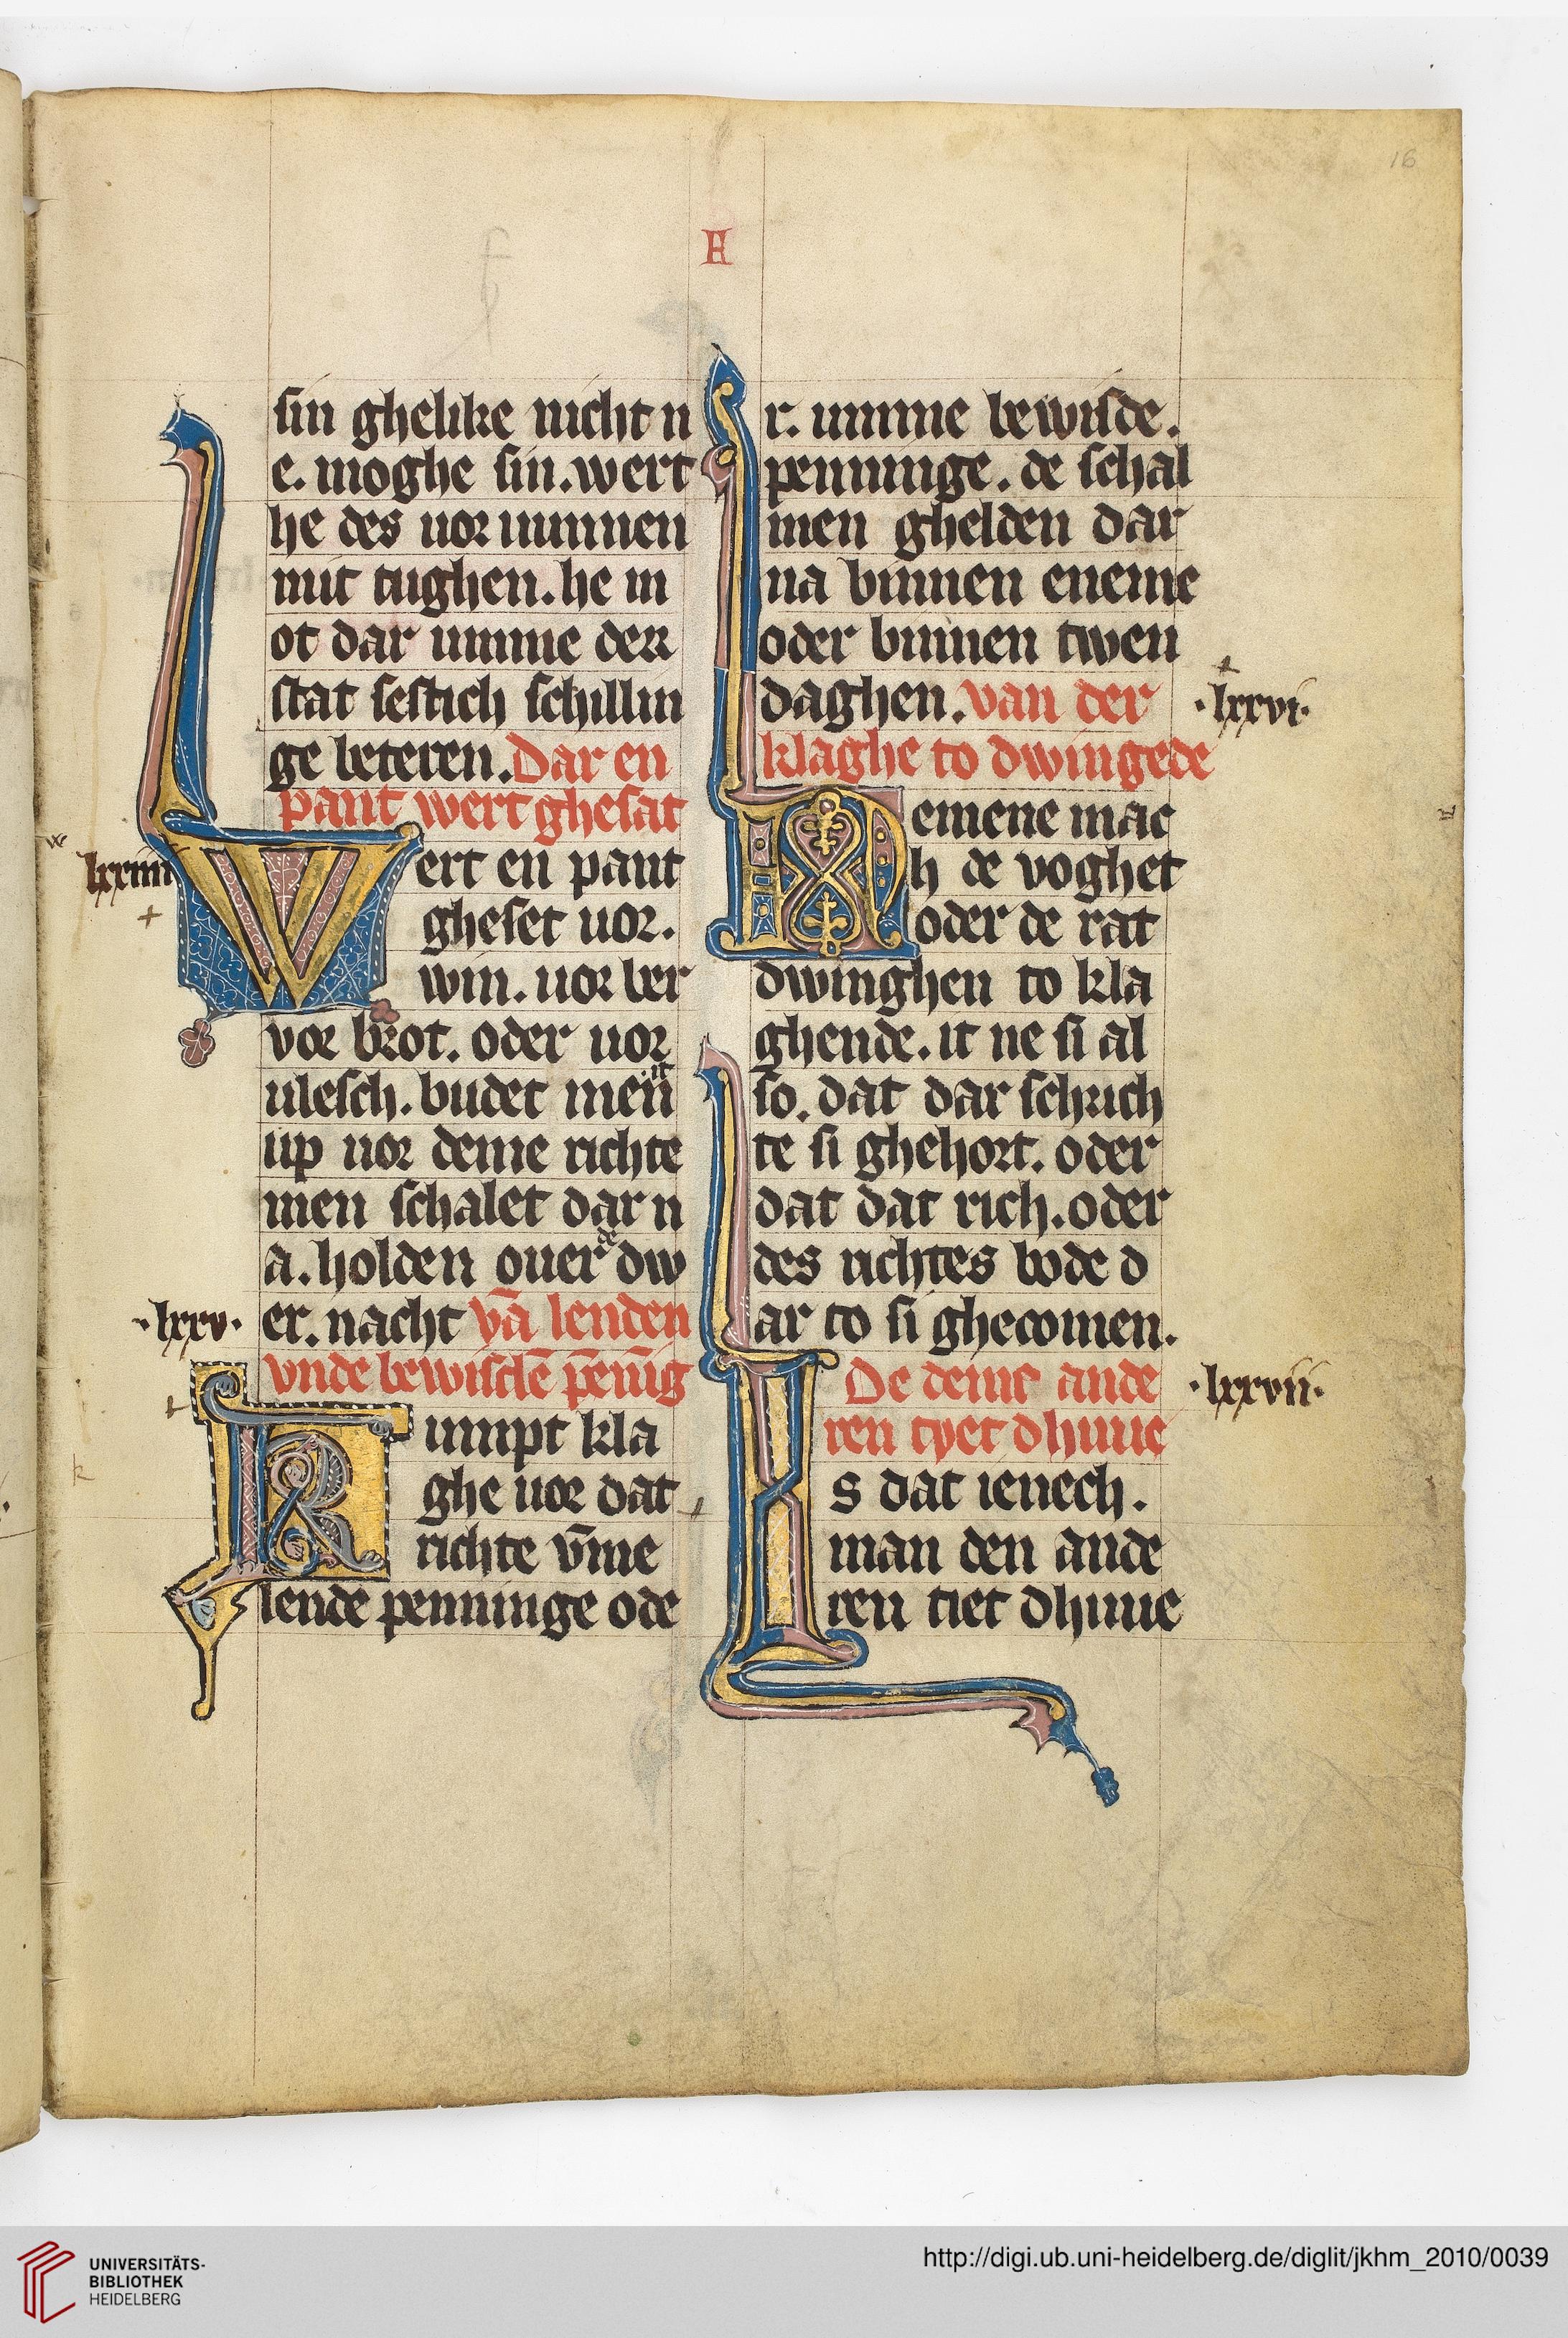 16
A
sin ghelike nicht n
e. moghe sin. wert
he des uor wnnen
mit tughen. he m
ot dar umme derr
stat sestich schillin
ge beteren. Dar en
pant wert ghesat
lxxiiii
Wert en pant
gheset uor.
win. uor ber
vor brot. oder uor
ulesch. budet men it
up uor deme richte
men schalet dar n
a. holden ouer de dw
er. nacht vā lenden
·lxxv·
vnde bewisclē pēnīg
Kumpt kla
ghe uor dat
richte v̄me
lende penninge ode
r. umme bewisde.
penninge. de schal
men ghelden dar
na binnen eneme
oder binnen twen
daghen. van der
·lxxvi·
klaghe to dwingede
Nemene mac
h de voghet
oder de rat
dwinghen to kla
ghende. it ne si al
so. dat dar schrich
te si ghehort. oder
dat dat rich. oder
des richtes bode d
ar to si ghecomen.
De deme ande
·lxxvii·
ren tyet dhuue
Is dat ienech.
man den ande
ren tiet dhuue
UNIVERSITÄTS-
BIBLIOTHEK
HEIDELBERG
http://digi.ub.uni-heidelberg.de/diglit/jkhm_2010/0039